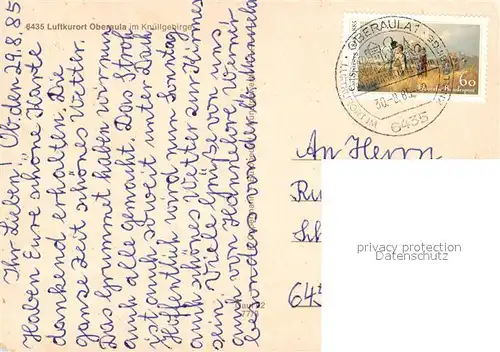 6435 Luftkurort Oberaula im Knüllgebirge
Ob. den 29.8.85
Ihr Lieben!
Haben Eure schöne Karte
dankend erhalten. Die
ganze Zeit schönes Wetter.
Das Grummet haben wir nun
auch alle gemacht. Das Stroh
ist auch soweit unter Dach
Hoffentlich wird nun Sonntag
auch schönes Wetter zur Kirmes
sein. Viele Grüße von uns
auch von Hedu, Isidor, Werner
besonders von der Manuela
OBERAULA 1
30.-8.85
6435
LUFTKURORT
Carl Spitzweg
60
Deutsche Bundespost
An Herrn
Ru
Sch
643
privacy protection
DatenSchutz